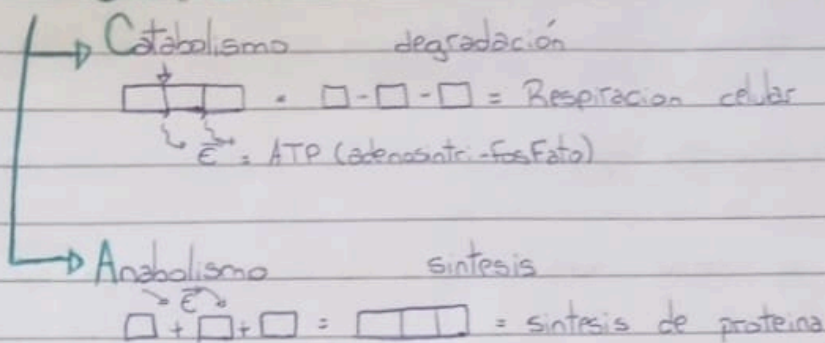 Catabolismo degradación
= Respiracion celular
E = ATP (adenosintri-fosfato)
Anabolismo sintesis
E
+ + = = sintesis de proteina